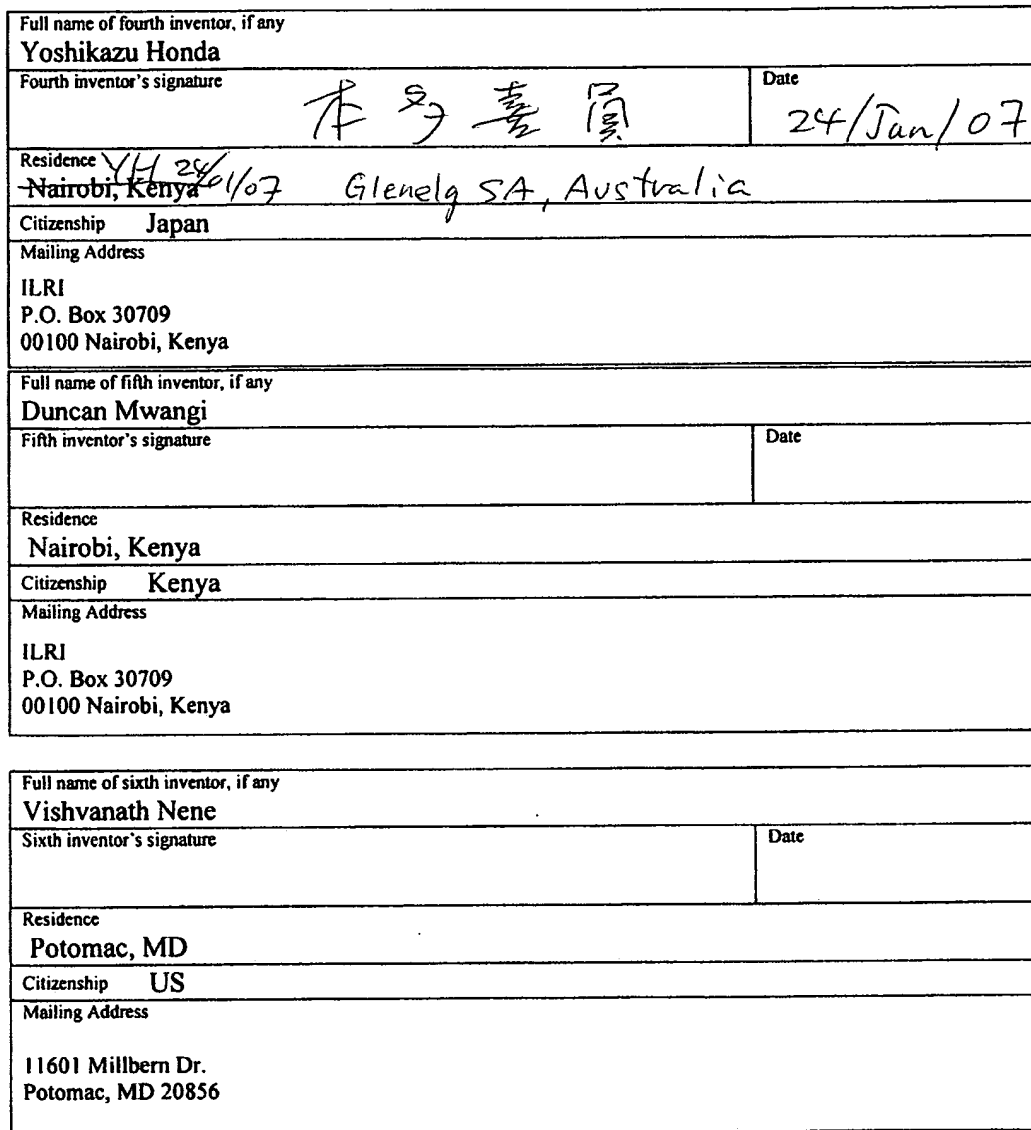 Full name of fourth inventor, if any
Yoshikazu Honda
Fourth inventor's signature
本多喜員
Date
24/Jan/07
Residence YH 24/01/07
Nairobi, Kenya Glenelg SA, Australia
Citizenship Japan
Mailing Address
ILRI
P.O. Box 30709
00100 Nairobi, Kenya
Full name of fifth inventor, if any
Duncan Mwangi
Fifth inventor's signature
Date
Residence
Nairobi, Kenya
Citizenship Kenya
Mailing Address
ILRI
P.O. Box 30709
00100 Nairobi, Kenya
Full name of sixth inventor, if any
Vishvanath Nene
Sixth inventor's signature
Date
Residence
Potomac, MD
Citizenship US
Mailing Address
11601 Millbern Dr.
Potomac, MD 20856